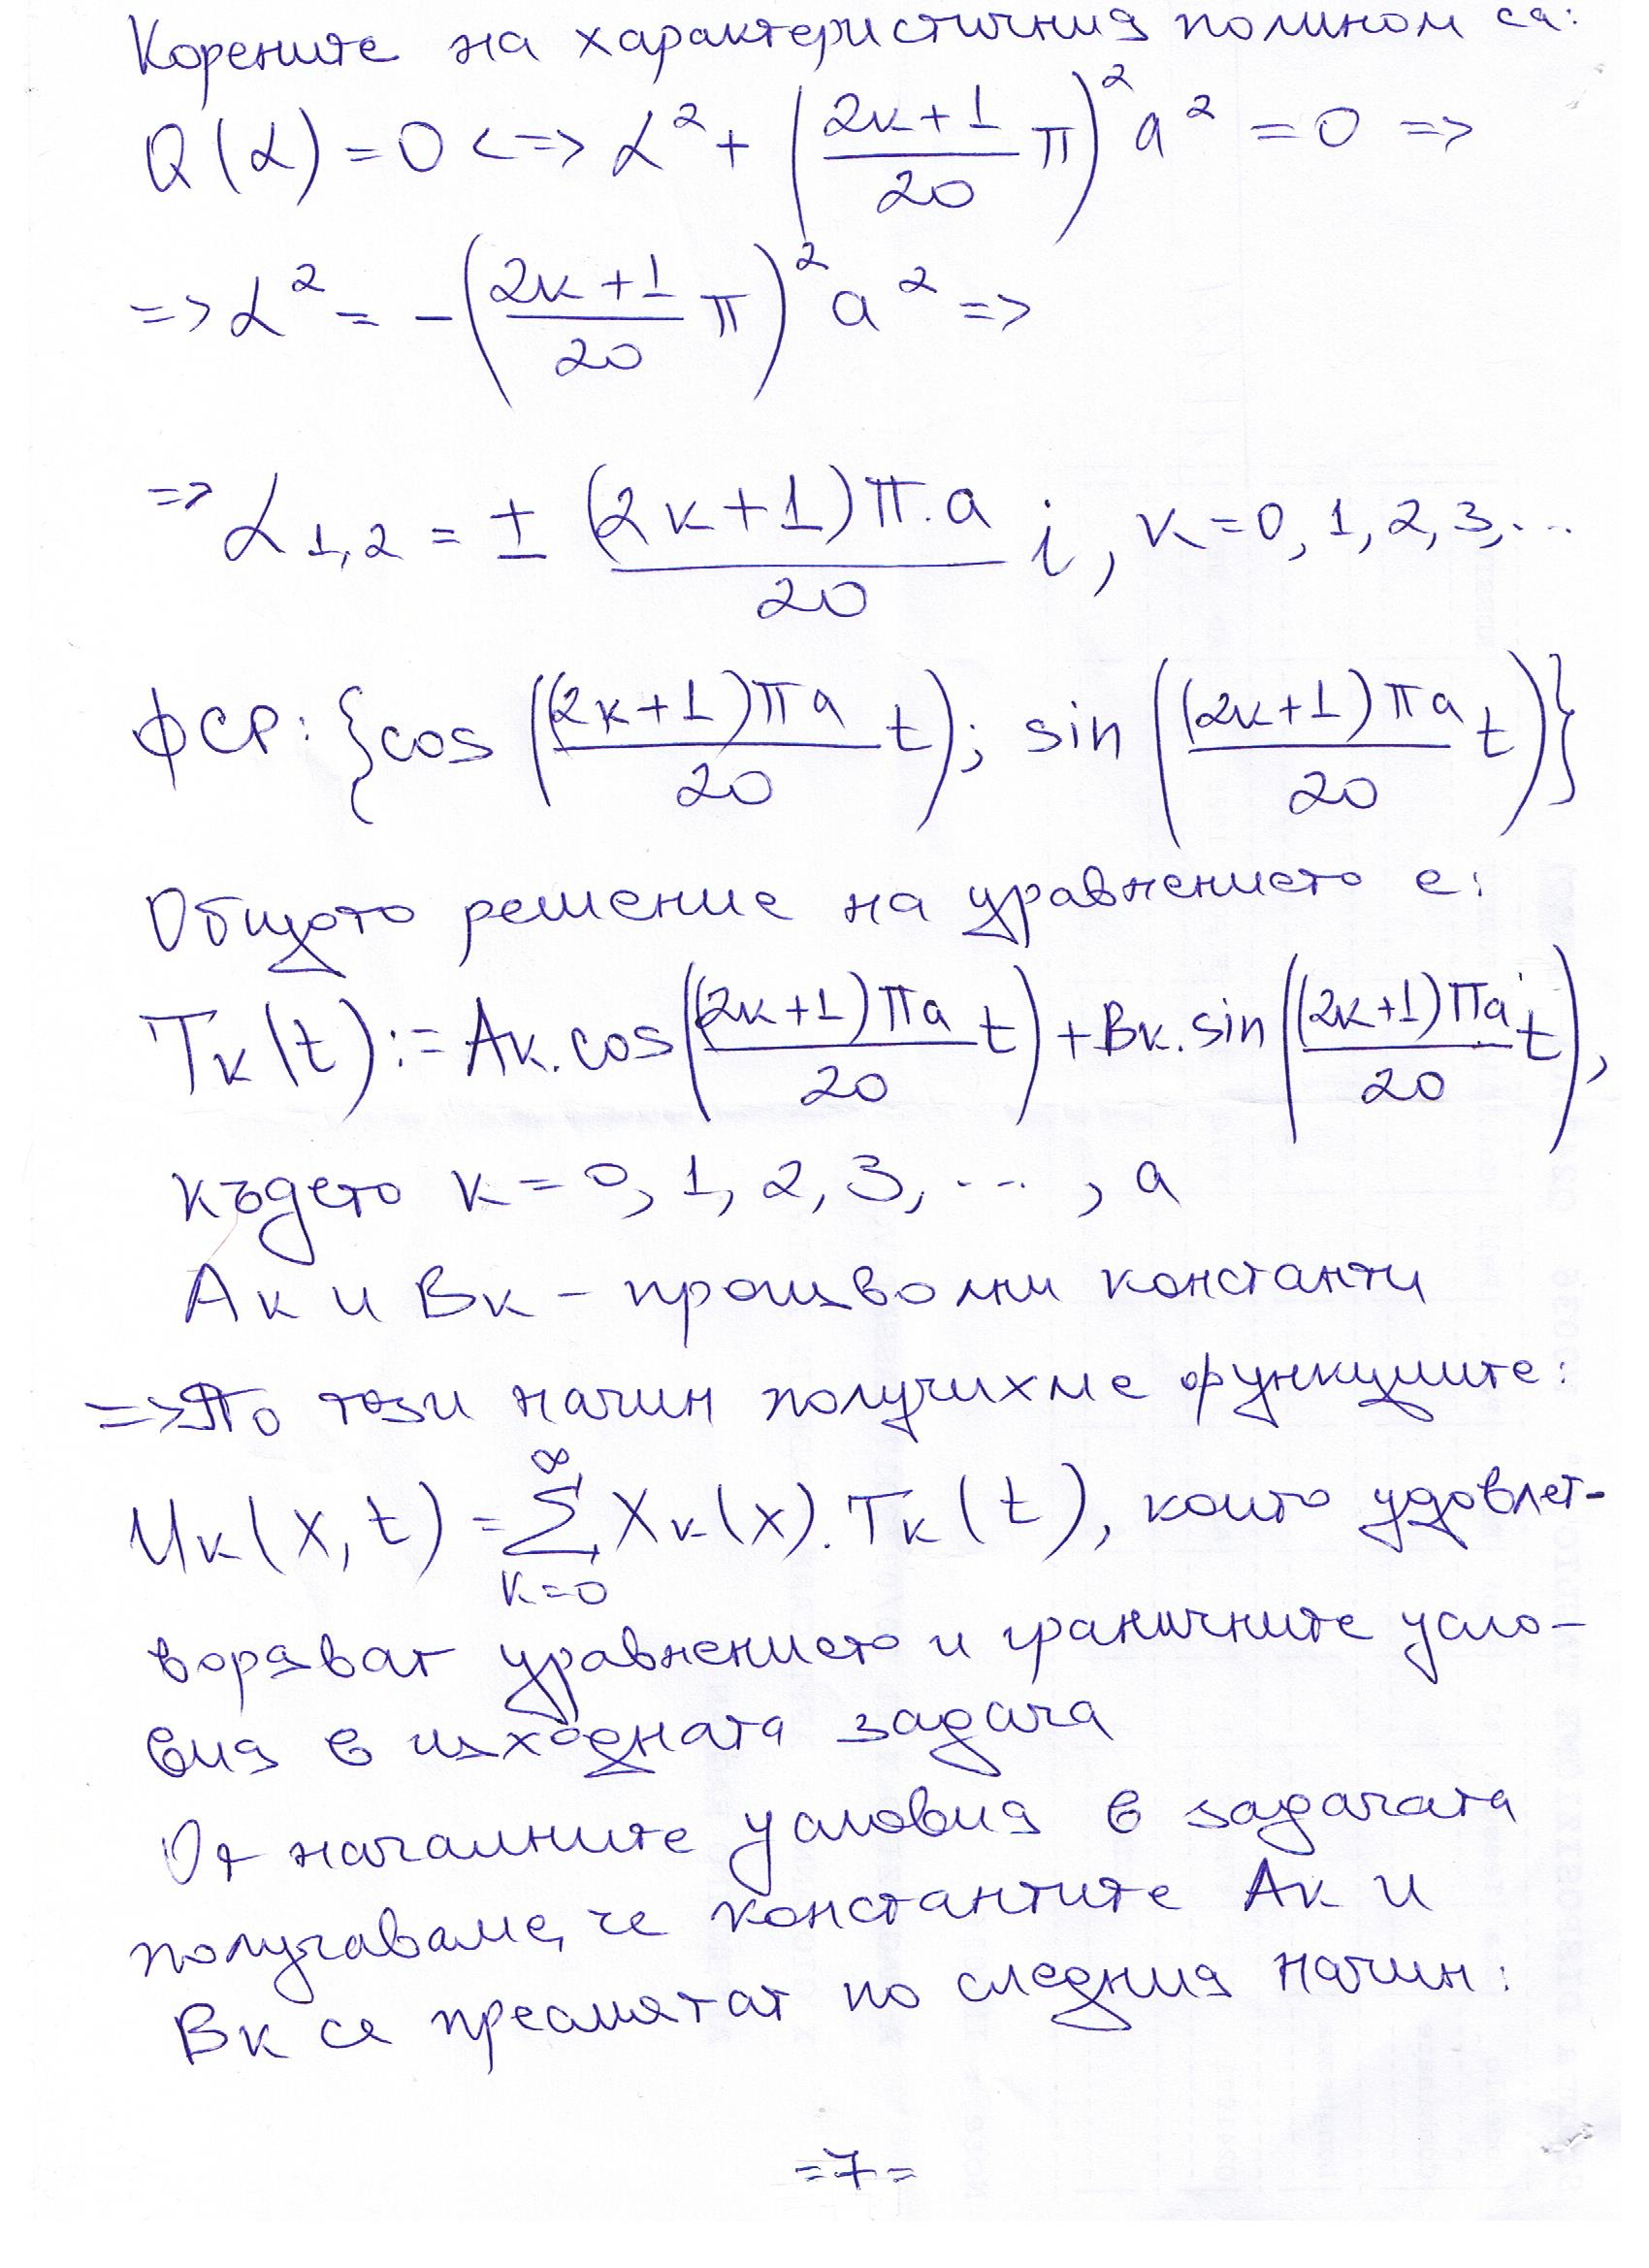 Корените на характеристичния полином са:
Q(α) = 0 <=> α² + ((2k+1)/20 π)² a² = 0 =>
=> α² = -((2k+1)/20 π)² a² =>
=> α₁,₂ = ± ((2k+1)π.a)/20 i, k=0, 1, 2, 3, ...
ФСР: {cos((2k+1)πa/20 t); sin((2k+1)πa/20 t)}
Общото решение на уравнението е:
Tk(t) := Ak.cos((2k+1)πa/20 t) + Bk.sin((2k+1)πa/20 t),
където k = 0, 1, 2, 3, ... , а
Ak и Bk - произволни константи
=> По този начин получихме функциите:
Uk(x,t) = ∑_{k=0}^{∞} Xk(x).Tk(t), които удовлет-
воряват уравнението и граничните усло-
вия в изходната задача
От началните условия в задачата
получаваме, че константите Ak и
Bk се пресмятат по следния начин:
=7=